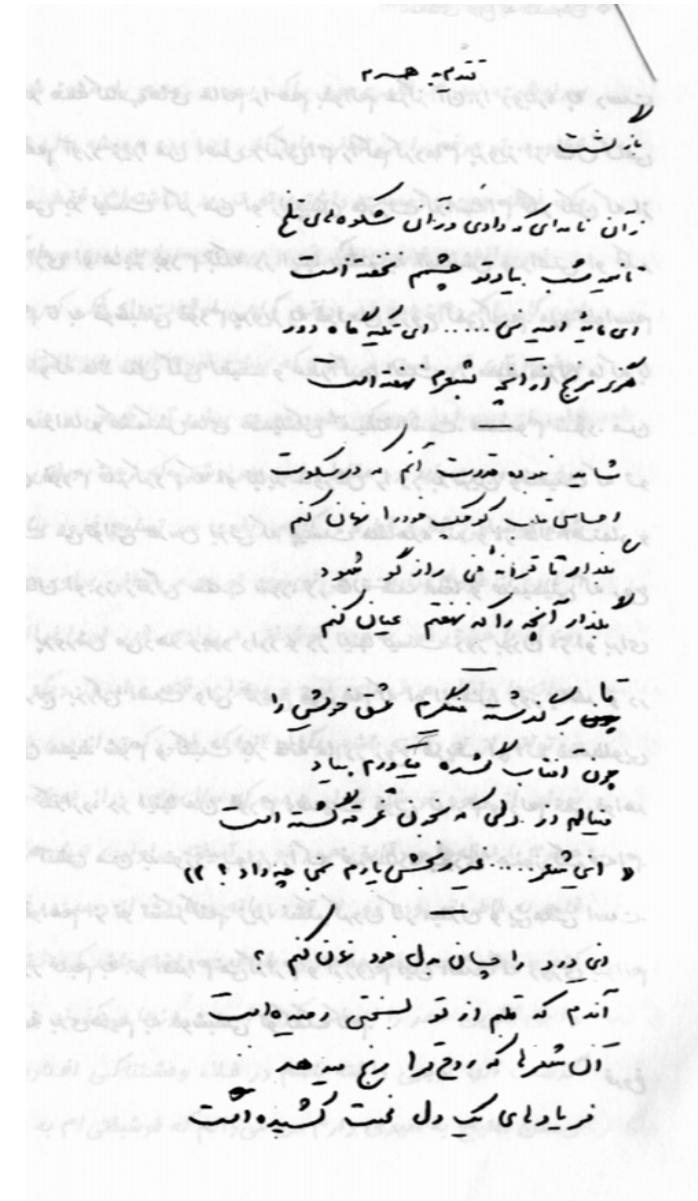 تقدیم به همسرم
بازگشت
زآن نامه‌ای که دادی و زآن شکوه‌های تلخ
تا نیمه شب بیاد تو چشمم نخفته است
ای مایه امید من .... ای تکیه گاه دور
هرگز مرنج از آنچه بشعرم نهفته است
شاید نبوده قدرت آنم که در سکوت
احساس قلب کوچک خود را نهان کنم
بگذار تا ترانه من رازگو شود
بگذار آنچه را که نهفتم عیان کنم
تا بر گذشته مینگرم عشق خویش را
چون آفتاب گمشده میآورم بیاد
مینالم از دلی که بخون غرقه گشته است
« این شعر.... غیر رنجش یارم بمن چه داد؟ »
این درد را چسان به دل خود نهان کنم؟
آندم که قلبم از تو بسختی رمیده است
آن شعرها که روح ترا رنج میدهد
فریادهای یک دل محنت کشیده است